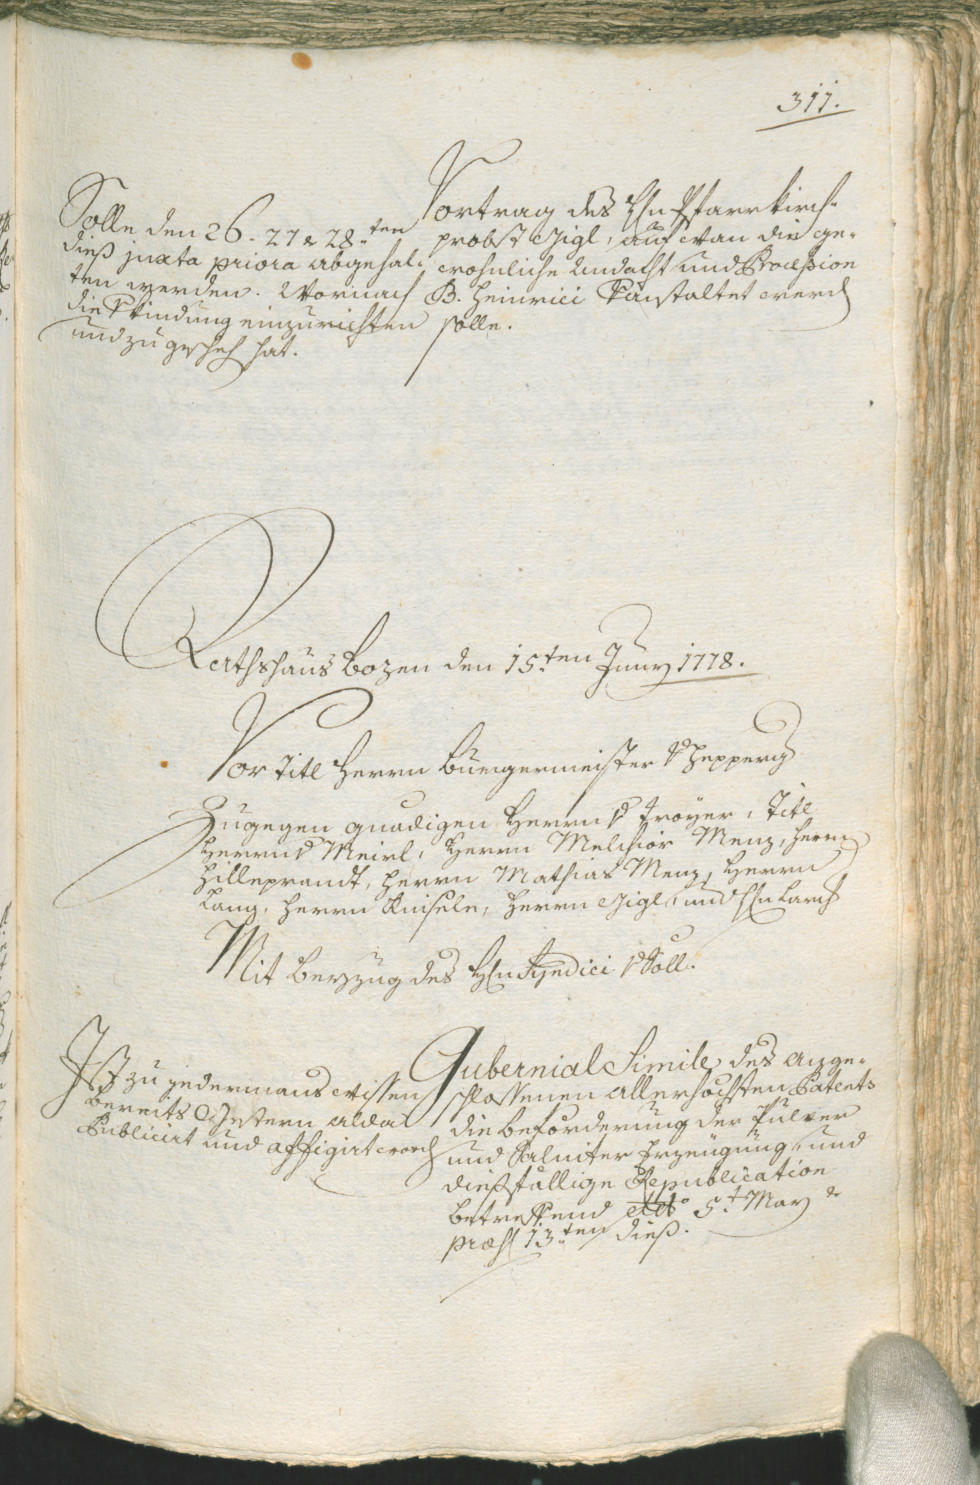 311.
Solle den 26. 27 & 28.ten
dieß juxta priora abgehal-
ten werden. Wornach
die
und zu hat.
Vortrag des Hn Pfarrkirch-
probst Gigl, auf wan die ge-
wohnliche Andacht und Procession
B. Heinrici veranstaltet werden
solle.
Rathshaus Bozen den 15.ten Juny 1778.
Vor Titl Herrn Burgermeister v
Zugegen gnädigen Herrn v Troyer, Titl
Herrn v Meirl, Herrn Melchior Menz, Herrn
Hilleprandt, Herrn Mathias Menz, Herrn
Lang, Herrn Kinsele, Herrn Gigl, und Hn Larch
Mit Beyzug des Hn Syndici v Söll.
Ist zu jedermans wissen
bereits Gestern alda
Publicirt und affigirt word
Gubernial Simile, des ange-
schlossenen allerhöchsten Patents
die beförderung der Pulver
und Saliniter Erzeugung, und
dießfällige Republication
betreffend ddto 5.t May &
præs 13.ten dieß.